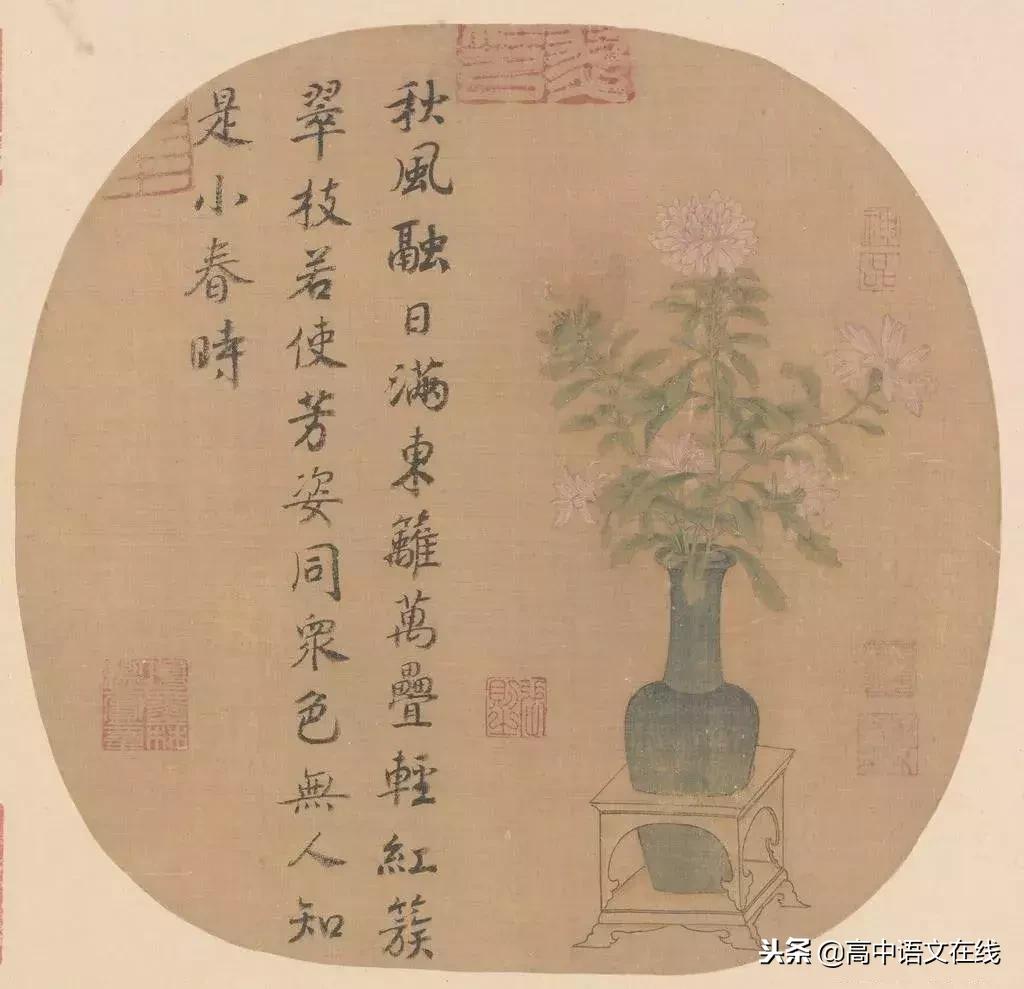 秋風融日滿東籬萬疊輕紅簇
翠枝若使芳姿同衆色無人知
是小春時
头条 @高中语文在线